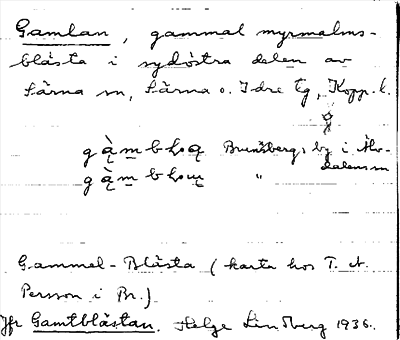 Gamlan, gammal myrmalms-
blästa i sydöstra delen av
Särna sn, Särna o. Idre tg, Kopp. l.
Brunsberg, by i Älv-
dalens sn
"
Gammel-Blästa (karta hos T. A.
Persson i Br.)
Jfr Gamtblästan. Helge Lindberg 1936.